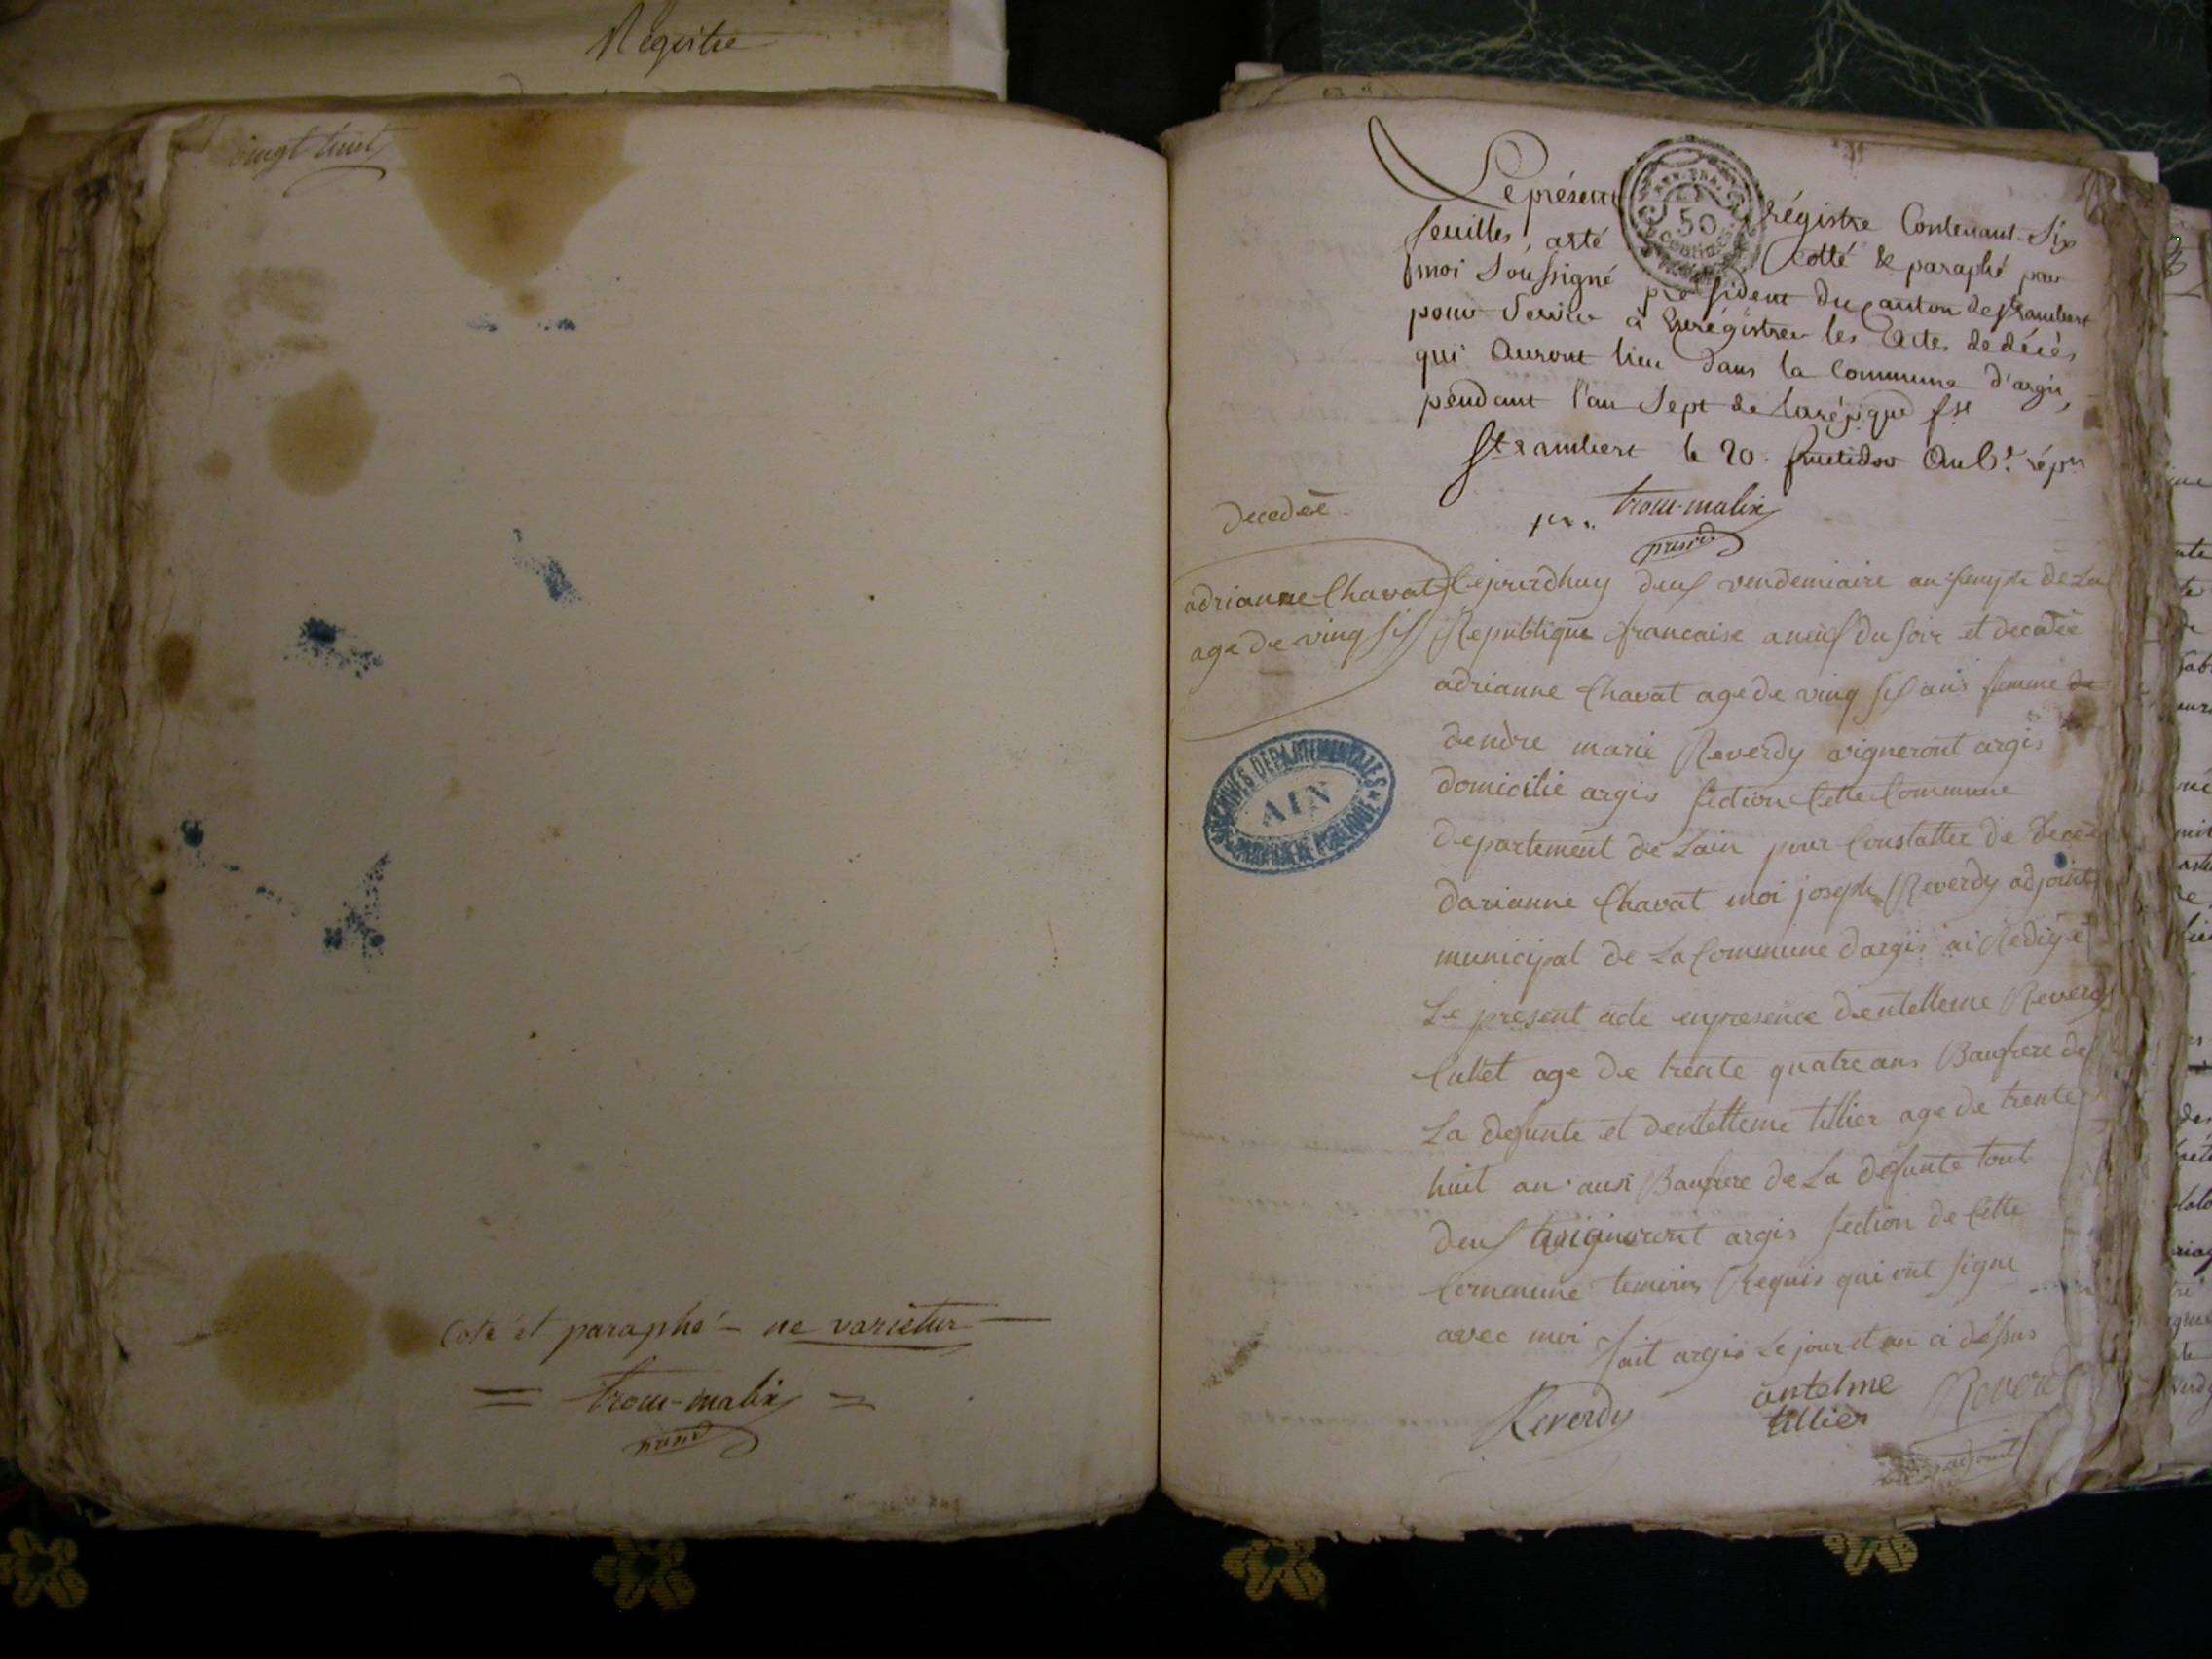 Registre
vingt huit
Coté et paraphé - ne varietur
= trocu-malix =
Le présent régistre Contenant Six
feuilles, a été cotté & paraphé par
moi Soussigné président du canton de St rambert
pour Servir a Enrégistrer les Actes de décès
qui Auront lieu dans la Commune d'argis,
pendant l'an Sept de la répque fse
St rambert le 20 fructidor An 6e répn
trocu-malix
50
Centimes
Decedeé
adrianne Chavat
age de ving sis
Cejourdhuy deus vendemiaire an de La
Republique francaise a neuf du soir et decedeé
adrianne Chavat age de ving sis ans femme de
dendre marie Reverdy vigneront argis
domicilié argis section Cette Commune
departement de Lain pour Constatter de decés
darianne Chavat moi joseph Reverdy adjoint
municipal de La Commune dargis ai Redigé
Le present acte en presence dentelleme Reverdy
Cullet age de trente quatre ans Baufrere de
La defunte et dentelleme tillier age de trente
huit an ausi Baufrere de La defunte tout
deus vigneront argis section de Cette
Commune temoins Requis qui ont signe
avec moi fait argis Le jour et an ci dessus
Reverdy antelme tillier Reverdy
adjoint
ARCHIVES DEPARTEMENTALES
AIN